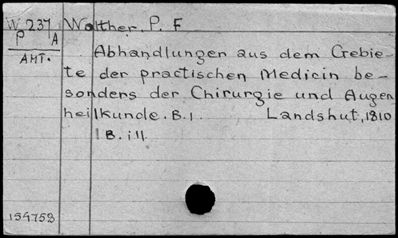 W 237 Walther, P. F
P A
AMT.
Abhandlungen aus dem Gebie-
te der practischen Medicin be-
sonders der Chirurgie und Augen
heilkunde. B. 1. Landshut, 1810
1 B. ill.
154753